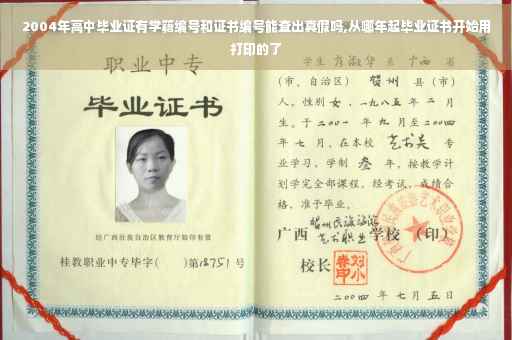 2004年高中毕业证有学籍编号和证书编号能查出真假吗,从哪年起毕业证书开始用
打印的了
职业中专
毕业证书
经广西壮族自治区教育厅验印有效
桂教职业中专毕字( )第18751号
学生 广西 省
(市、自治区) 贺州 县(市)
人,性别 女 ,一九八五年 二 月
生。于二00一 年 九 月至二00四
年 七 月,在本校 艺术美 专
业学习,学制 叁 年,按教学计
划学完全部课程,经考试,成绩合
格,准予毕业。
广西 贺州民族旅游
艺术职业 学校 (印)
校长
二00四 年 七 月 五 日